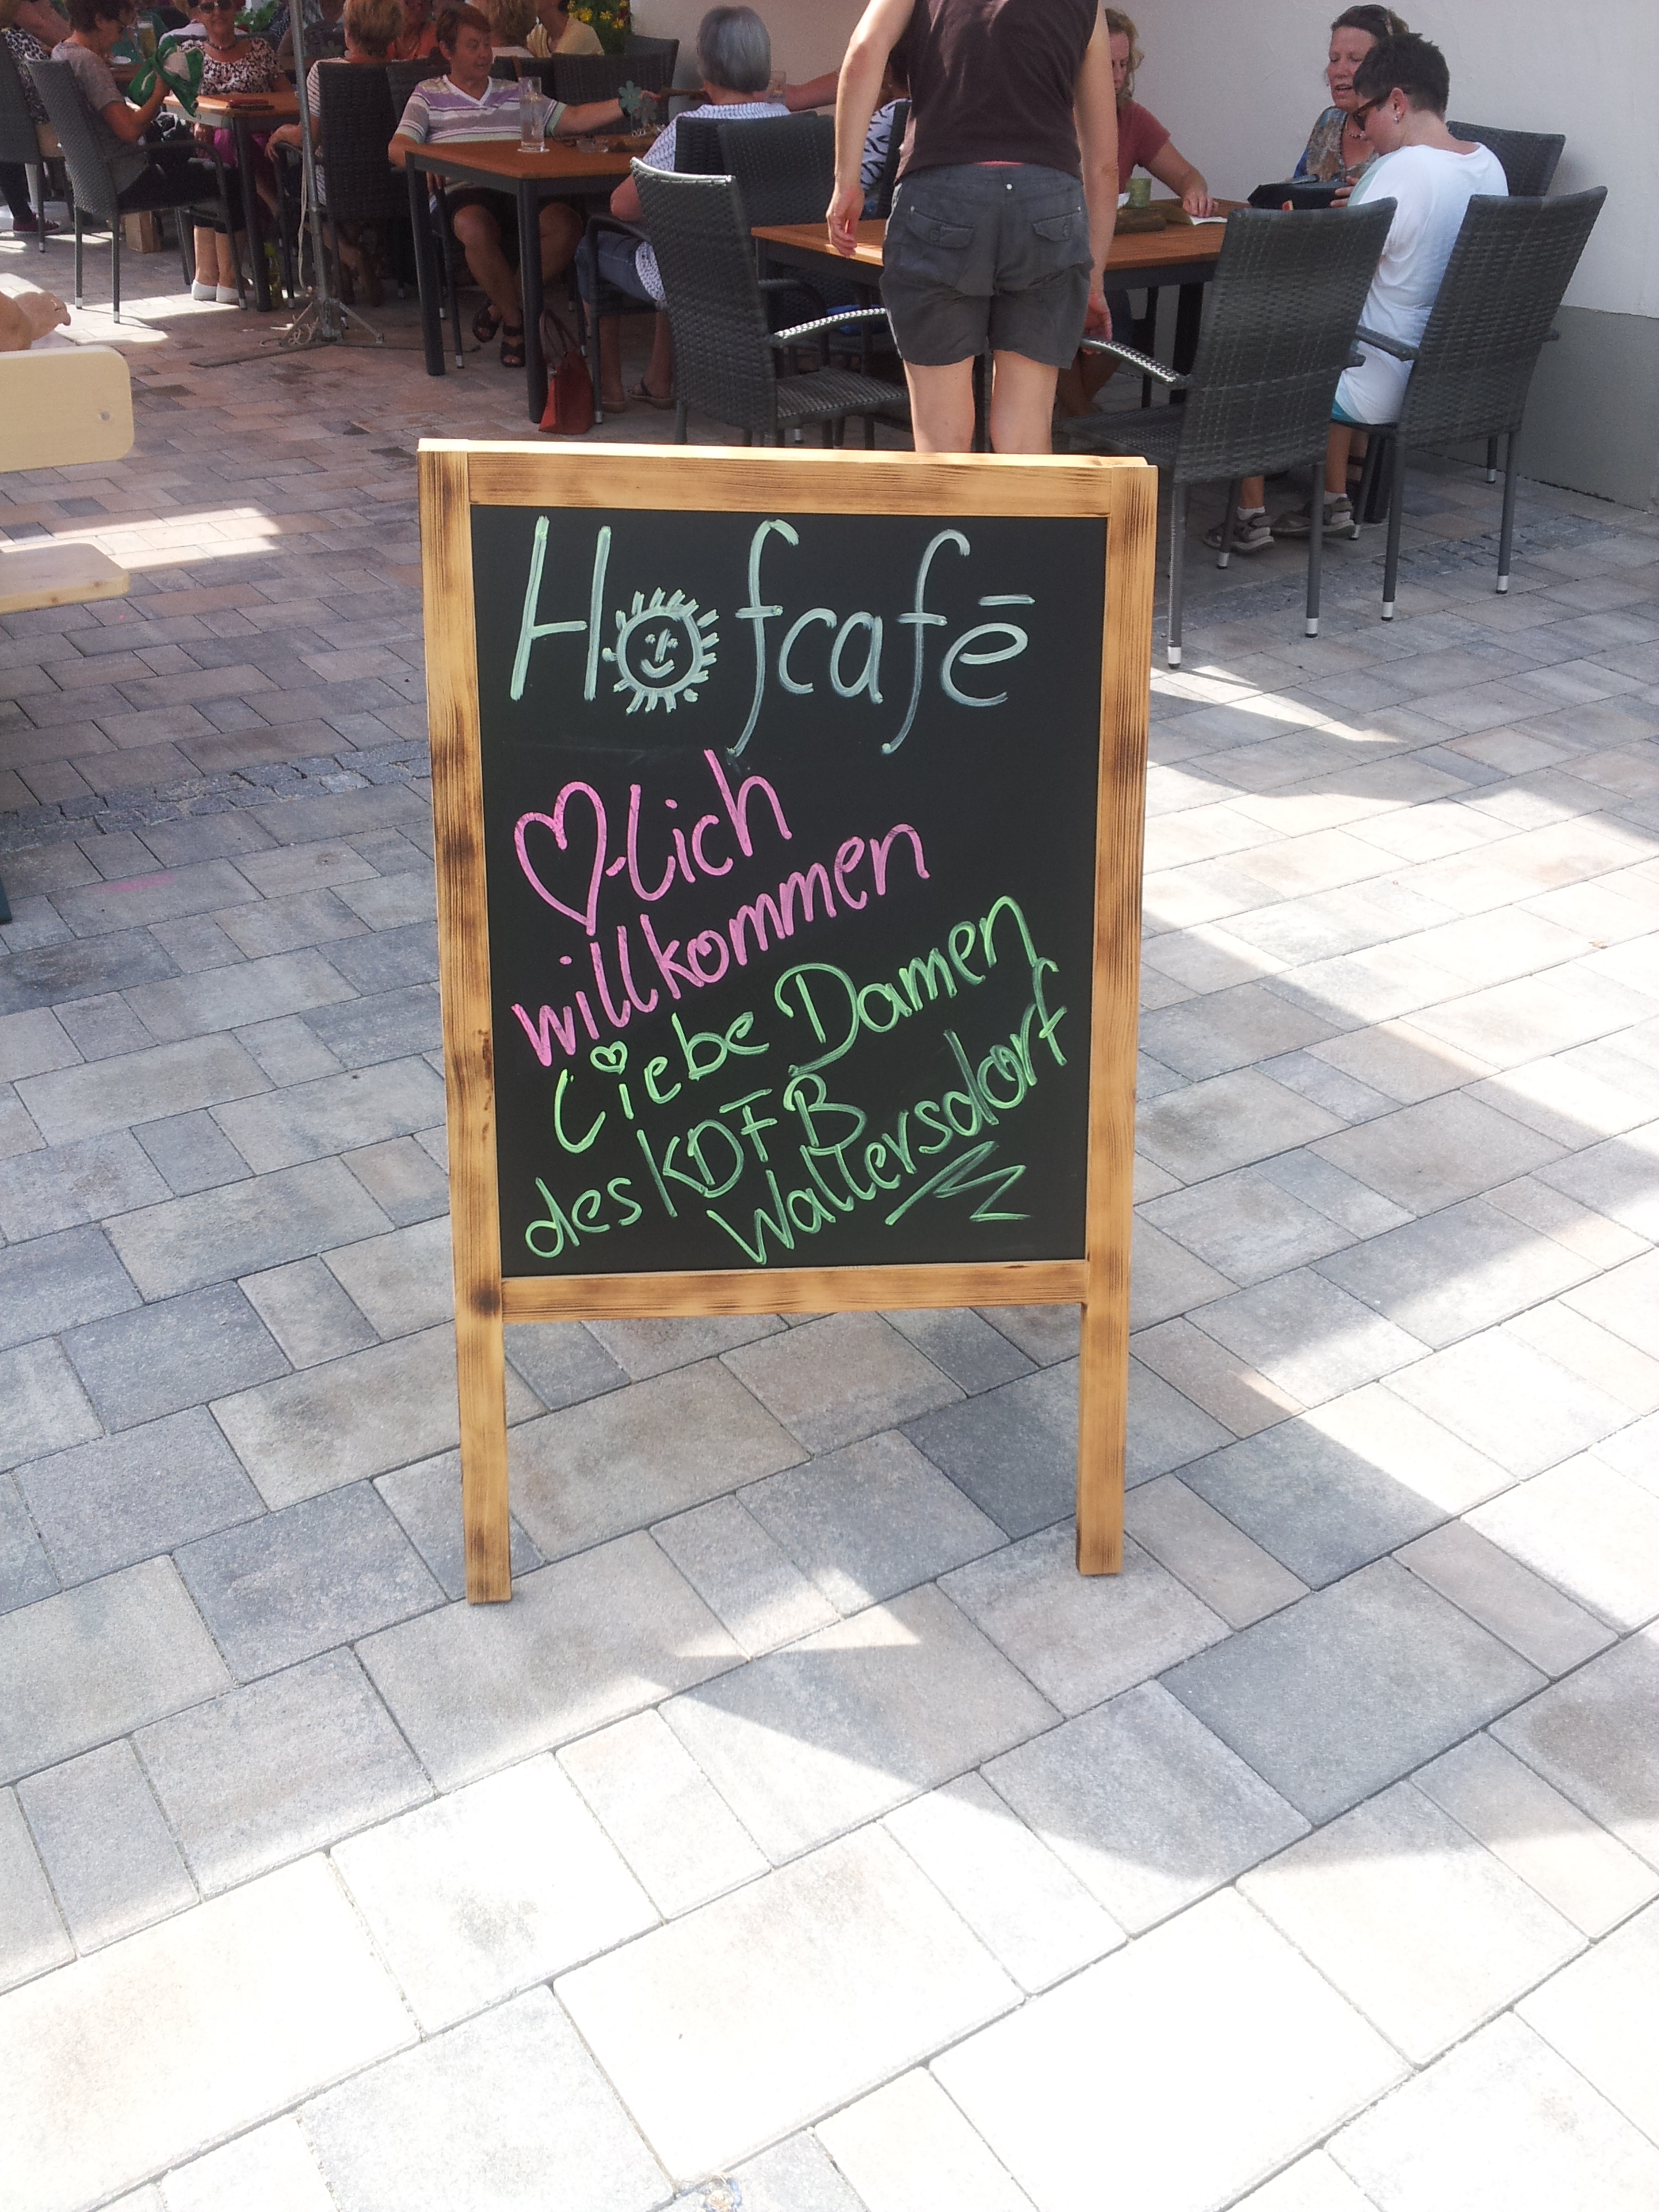 Hofcafē
♡-lich
willkommen
Liebe Damen
des KDFB
Wallersdorf